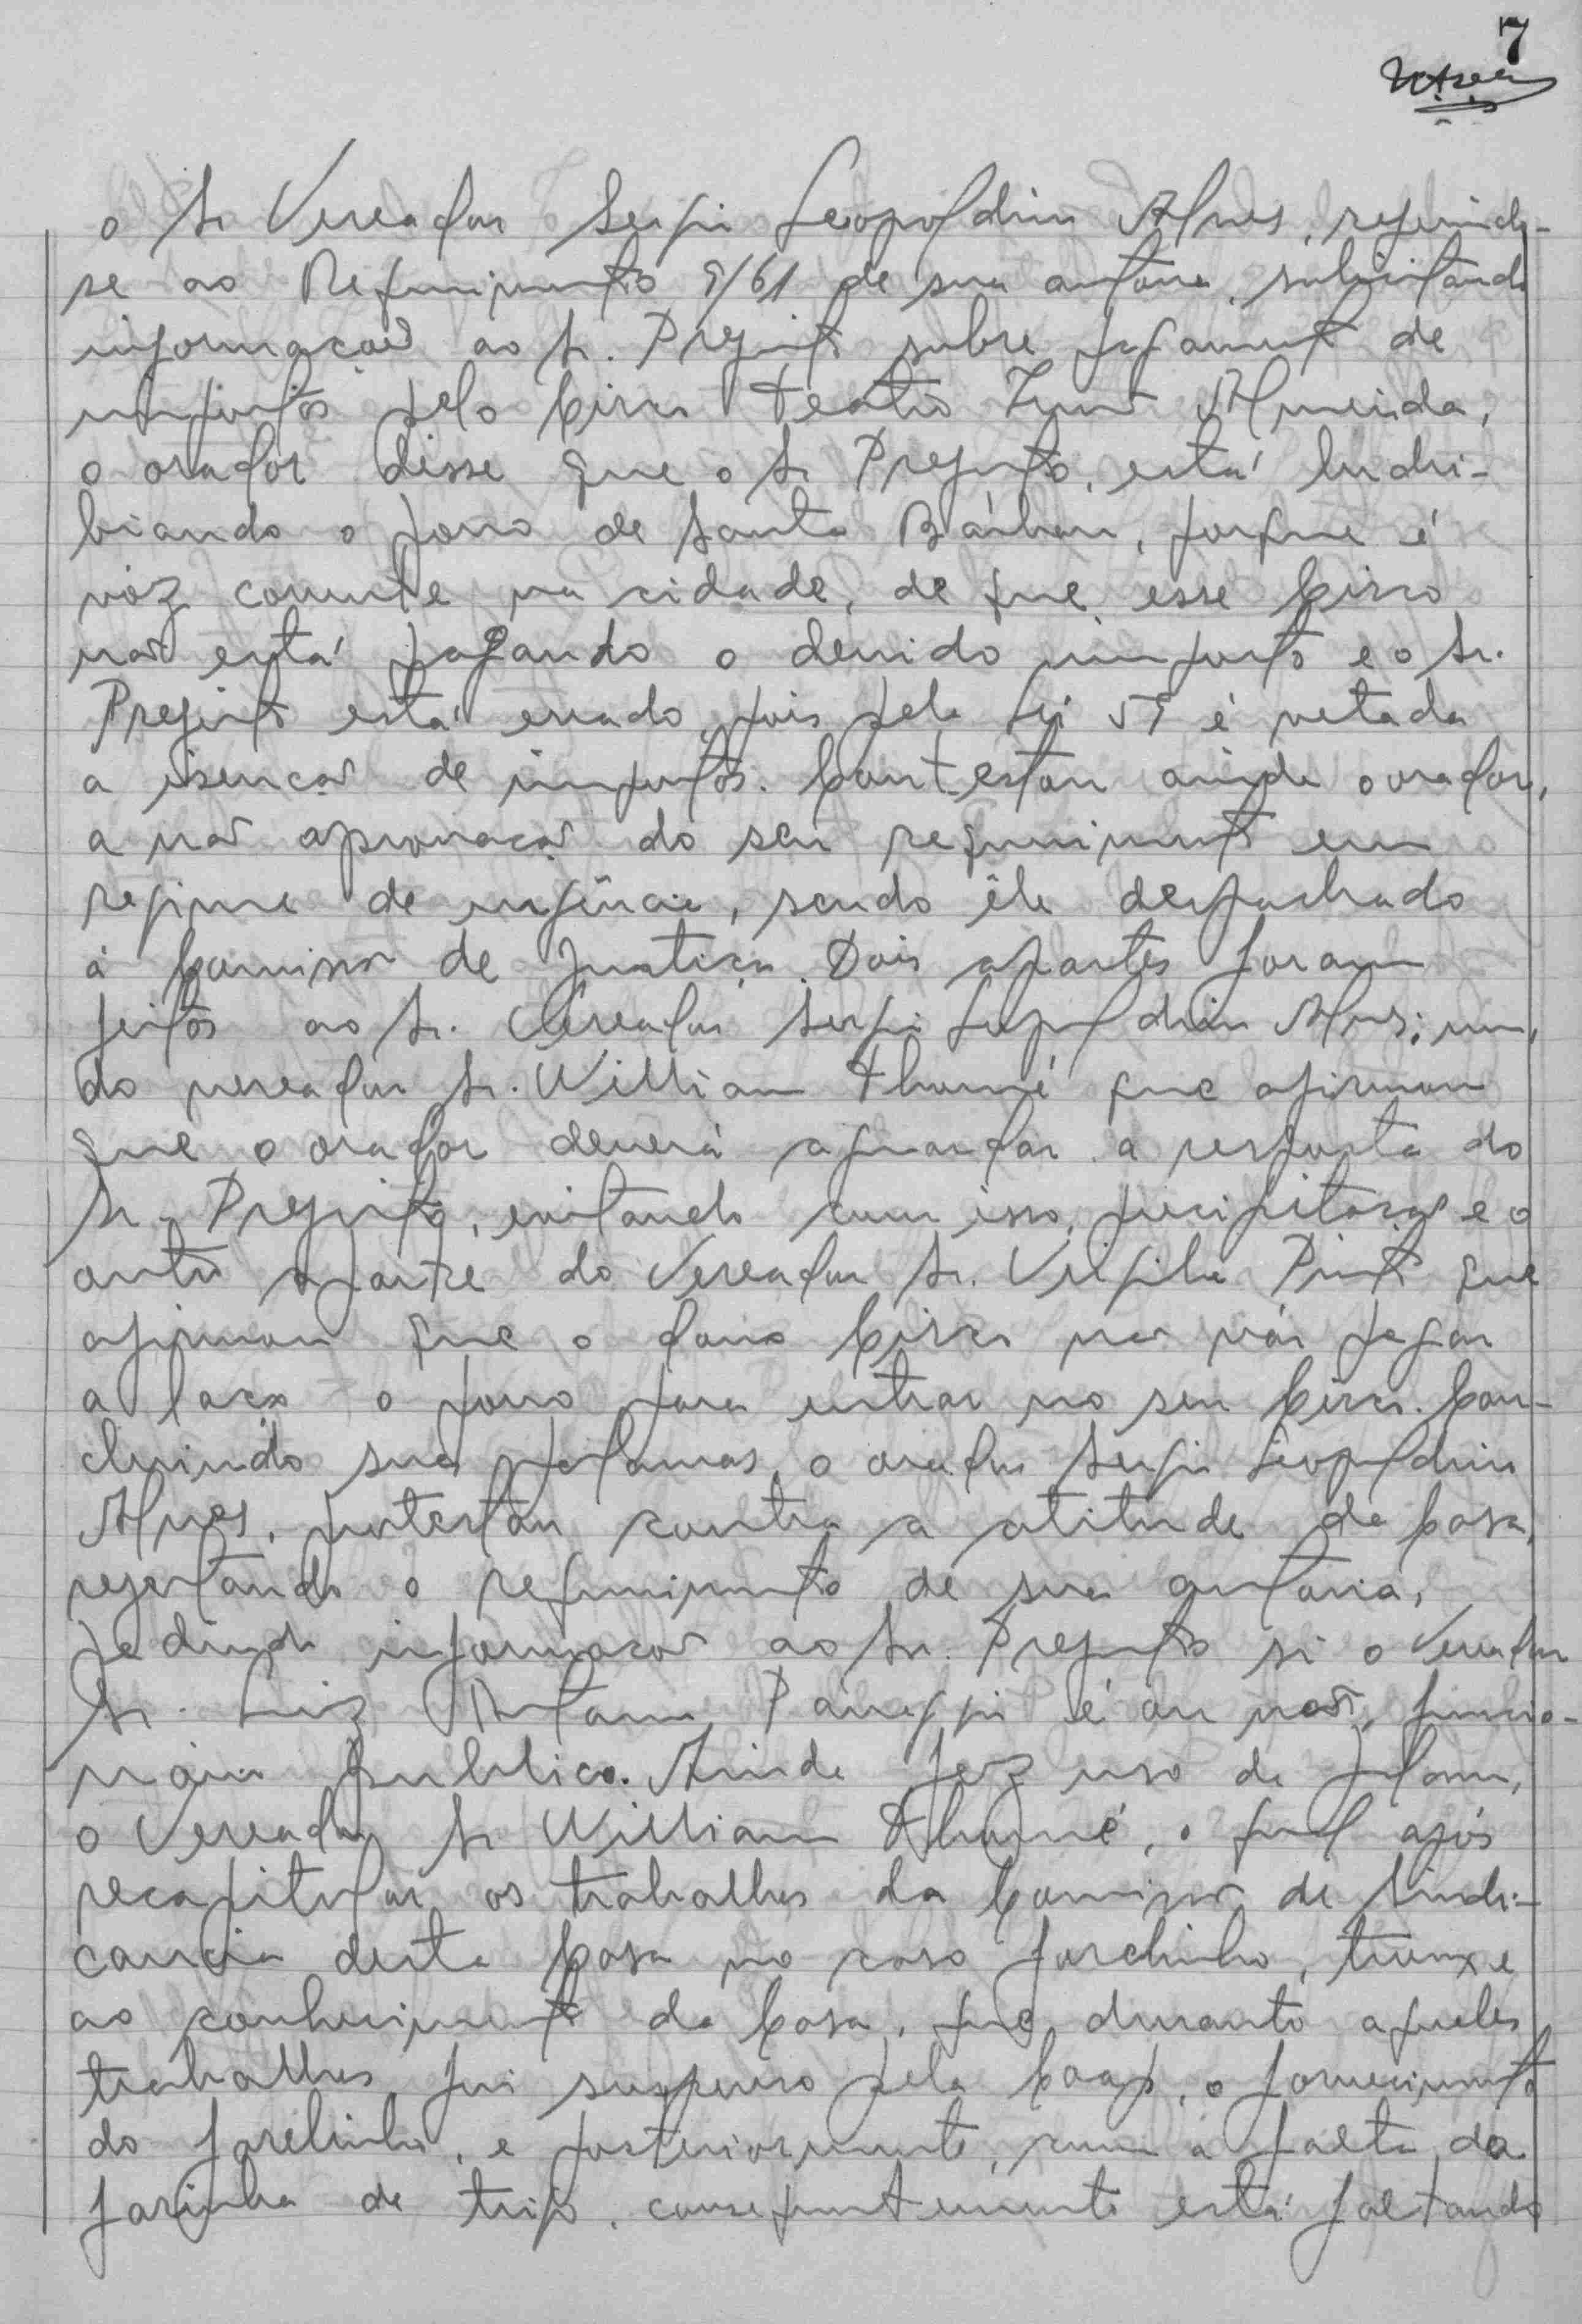 7
o Sr Vereador Sergio Leopoldino Alves, referindo-
se ao Requerimento 8/61 de sua autoria, solicitando
informações ao Sr. Prefeito sobre pagamento de
impostos pelo Circo Teatro Almeida,
o orador disse que o Sr Prefeito, está ludi-
briando o povo de Santa Bárbara, porque é
voz corrente na cidade, de que esse Circo
não está pagando o devido imposto e o Sr.
Prefeito está errado, pois pela Lei é vetada
a isenção de impostos. Contestou ainda o orador,
a não aprovação do seu requerimento em
regime de urgência, sendo êle despachado
á Comissão de Justiça. Dois apartes foram
feitos ao Sr. Vereador Sergio Leopoldino Alves; um,
do vereador Sr. William Thomé que afirmou
que o orador deverá aguardar a resposta do
Sr. Prefeito, evitando com isso, precipitação e o
outro aparte do Vereador Sr. Virgilio Pinto que
afirmou que o dono Circo não vai pegar
a laço o povo para entrar no seu Circo. Con-
cluindo suas palavras, o orador Sergio Leopoldino
Alves, protestou contra a atitude da Casa,
rejeitando o requerimento de sua autoria,
pedindo informação ao Sr. Prefeito si o Vereador
Sr. Luiz Panaggi é ou não, funcio-
nário publico. Ainda fez uso da palavra,
o Vereador Sr William Thomé, o qual após
recapitular os trabalhos da Comissão de Sindi-
cancia desta Casa no caso farelinho, trouxe
ao conhecimento da Casa, que durante aqueles
trabalhos foi suspenso pela Coap, o fornecimento
do farelinho, e posteriormente, com a falta da
farinha de trigo, consequentemente está faltando